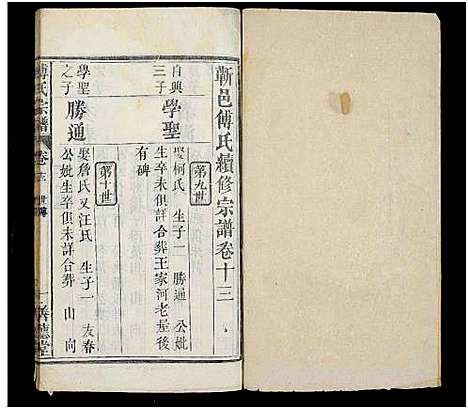 蘄邑傅氏續修宗譜卷十三
第九世
自興三子
學聖
娶柯氏 生子一 勝通 公妣
生卒未俱詳合葬王家河老屋後
有碑
第十世
學聖之子
勝通
娶詹氏又汪氏 生子一 友春
公妣生卒俱未詳合葬 山 向
傅氏宗譜
卷
世
堂